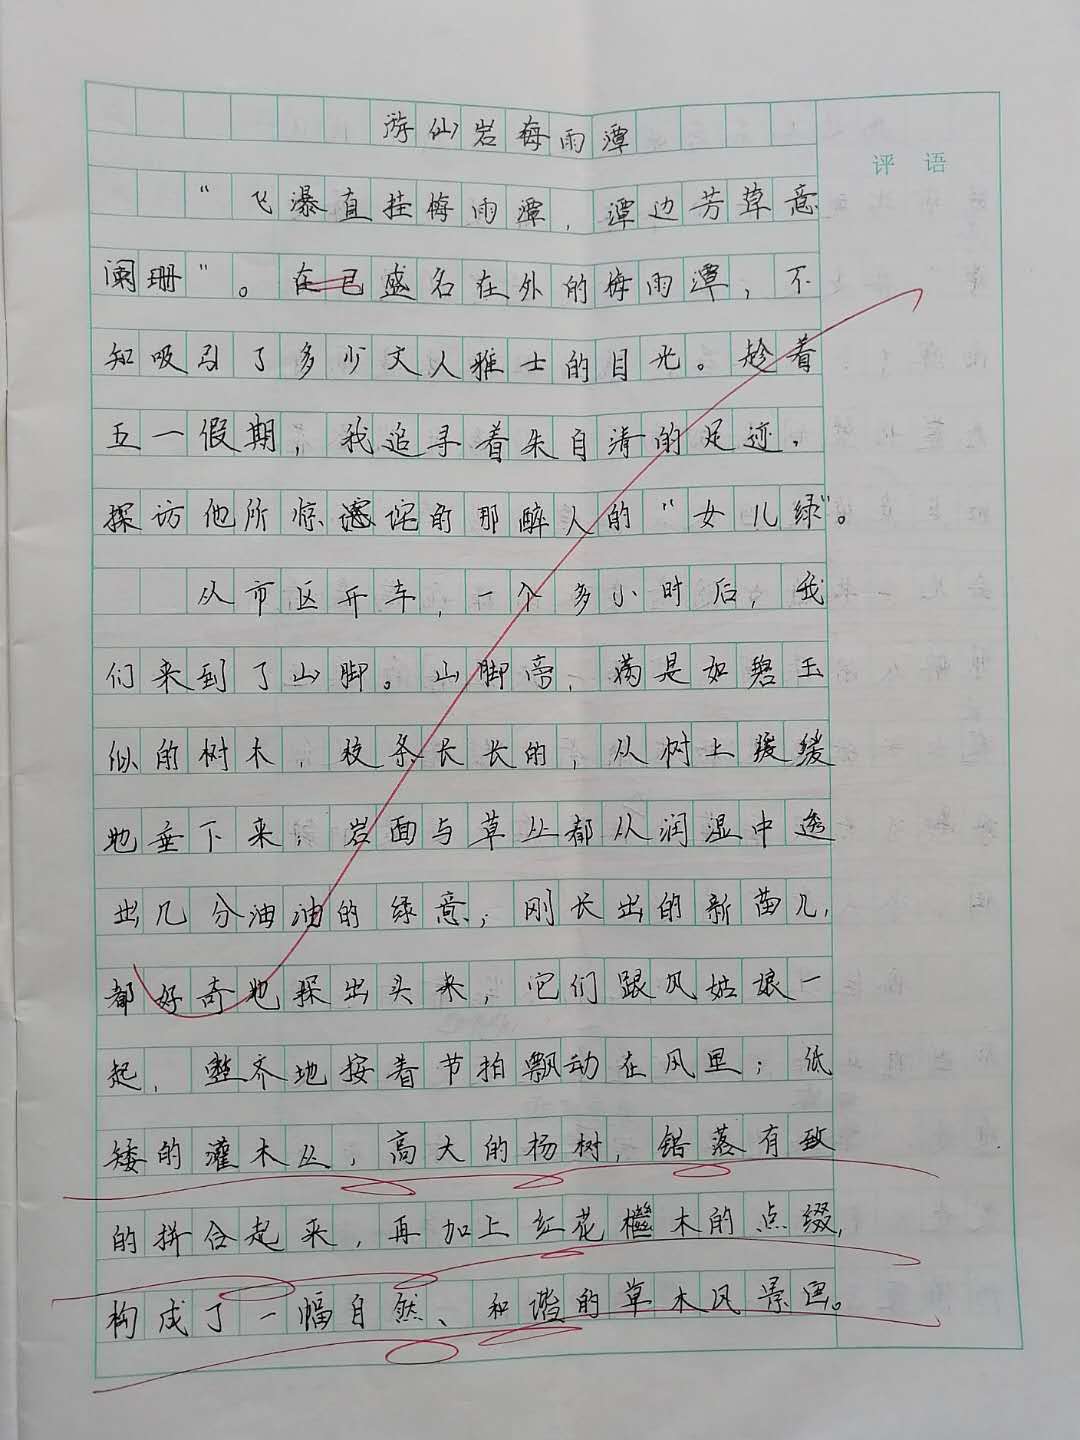 游仙岩梅雨潭
评语
“飞瀑直挂梅雨潭，潭边芳草意
阑珊”。在已盛名在外的梅雨潭，不
知吸引了多少文人雅士的目光。趁着
五一假期，我追寻着朱自清的足迹，
探访他所惊诧的那醉人的“女儿绿”。
从市区开车，一个多小时后，我
们来到了山脚。山脚旁，满是如碧玉
似的树木，枝条长长的，从树上缓缓
地垂下来；岩面与草丛都从润湿中透
出几分油油的绿意；刚长出的新苗儿，
都好奇地探出头来，它们跟风姑娘一
起，整齐地按着节拍飘动在风里；低
矮的灌木丛，高大的杨树，错落有致
的拼合起来，再加上红花檵木的点缀，
构成了一幅自然、和谐的草木风景画。